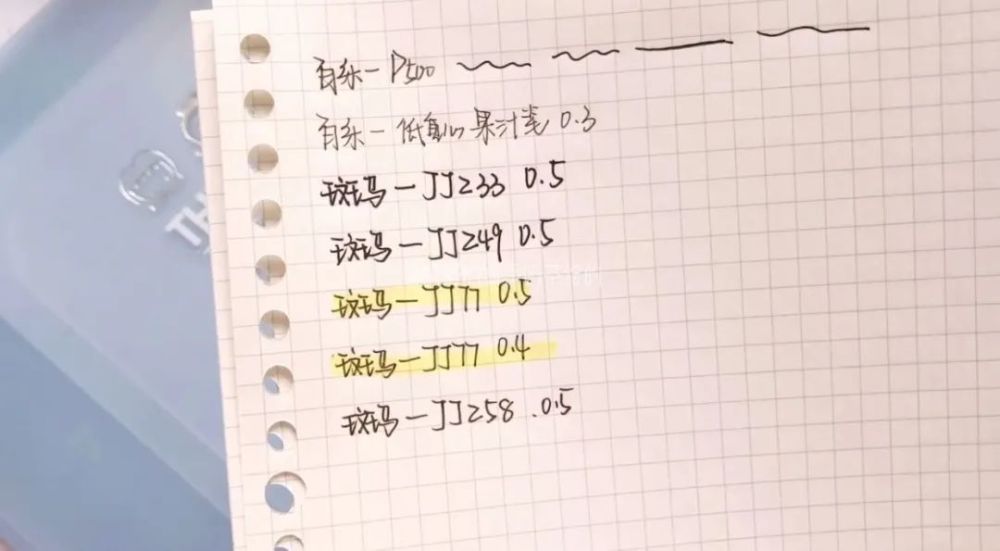 百乐一P500
百乐一低重心果汁笔 0.3
斑马一JJZ33 0.5
斑马一JJZ49 0.5
斑马一JJ77 0.5
斑马一JJ77 0.4
斑马一JJZ58 0.5